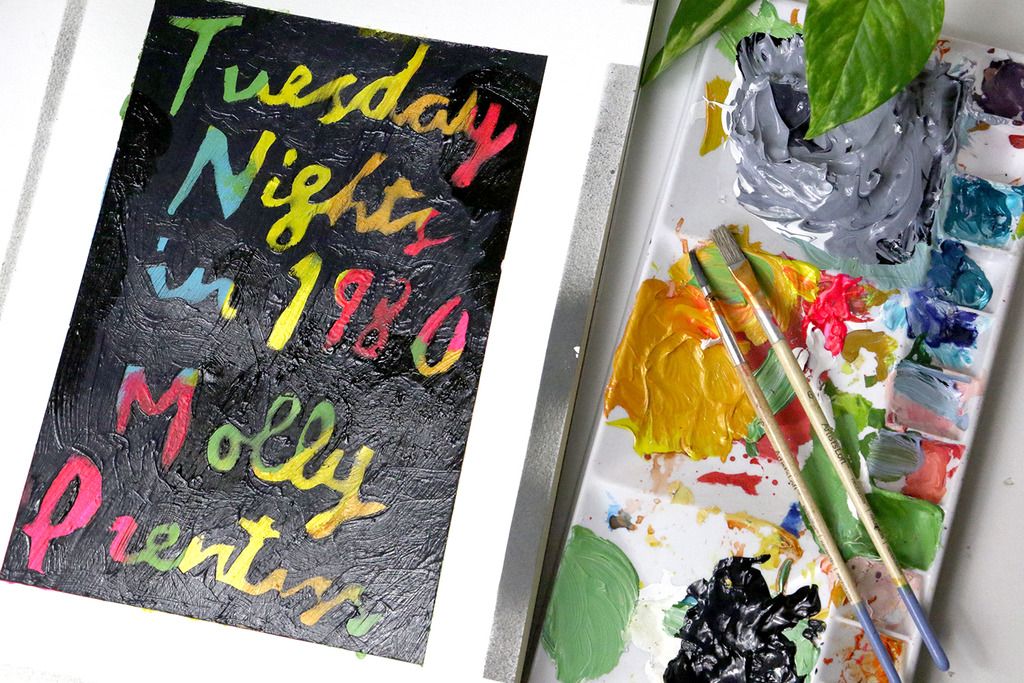 Tuesday
Nights
in 1980
Molly
Prentiss